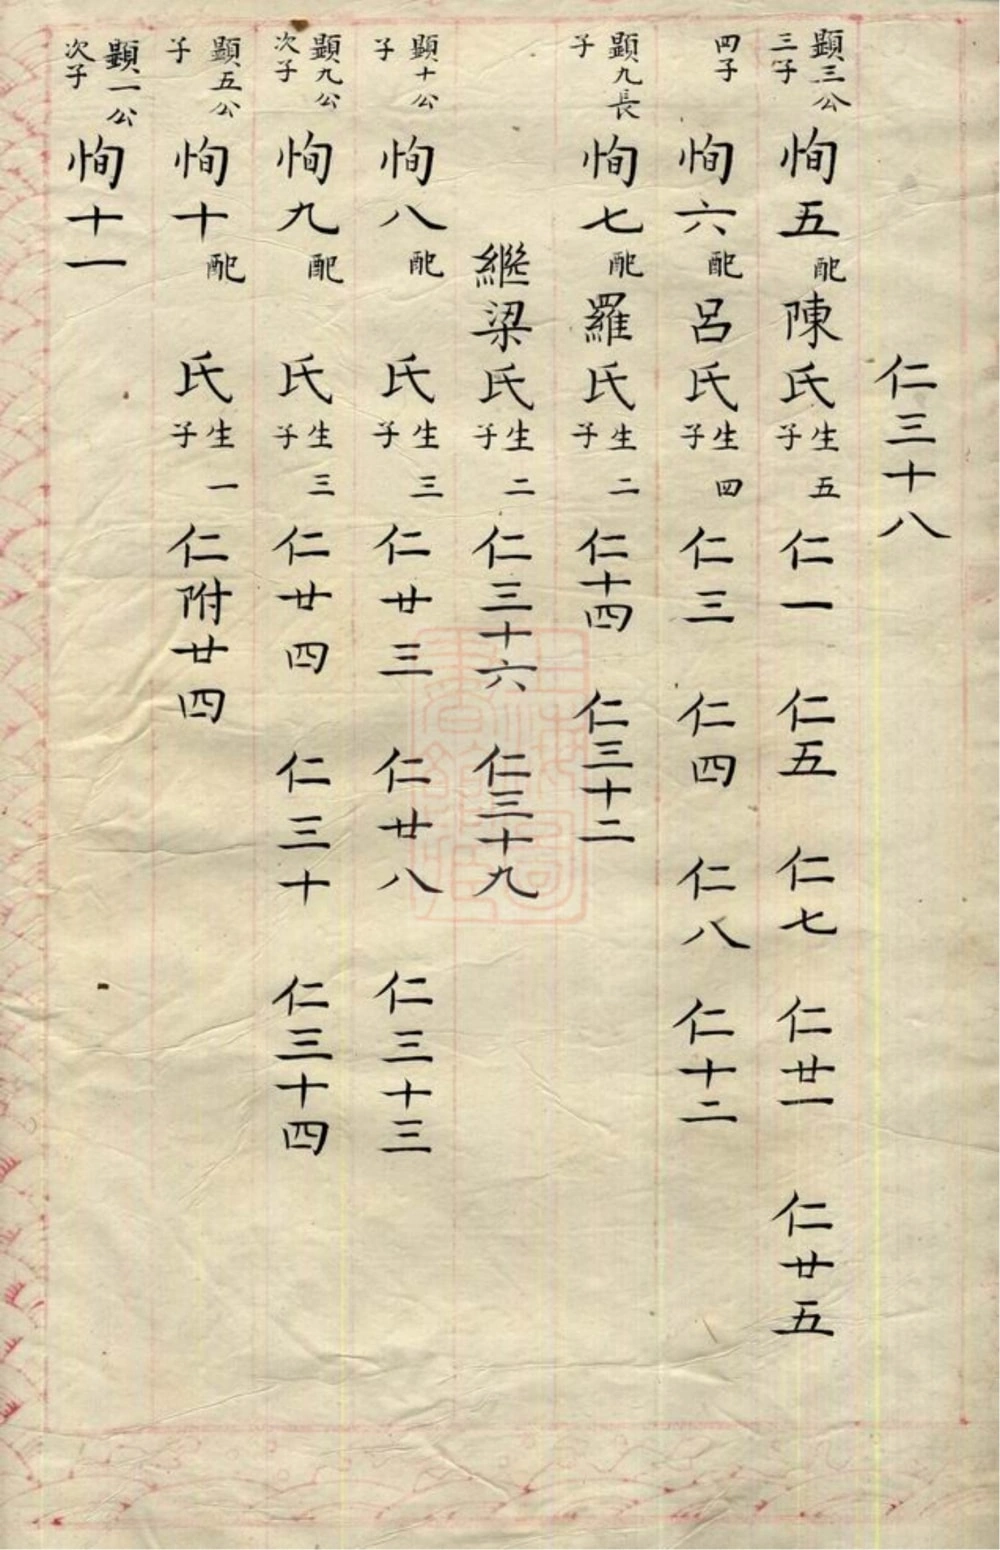 仁三十八
顯三公三子恂五配陳氏生子五仁一 仁五 仁七 仁廿一 仁廿五
四子恂六配呂氏生子四仁三 仁四 仁八 仁十二
顯九長子恂七配羅氏生子二仁十四 仁三十二
繼梁氏生子二仁三十六 仁三十九
顯十公子恂八配 氏生子三仁廿三 仁廿八 仁三十三
顯九公次子恂九配 氏生子三仁廿四 仁三十 仁三十四
顯五公子恂十配 氏生子一仁附廿四
顯一公次子恂十一